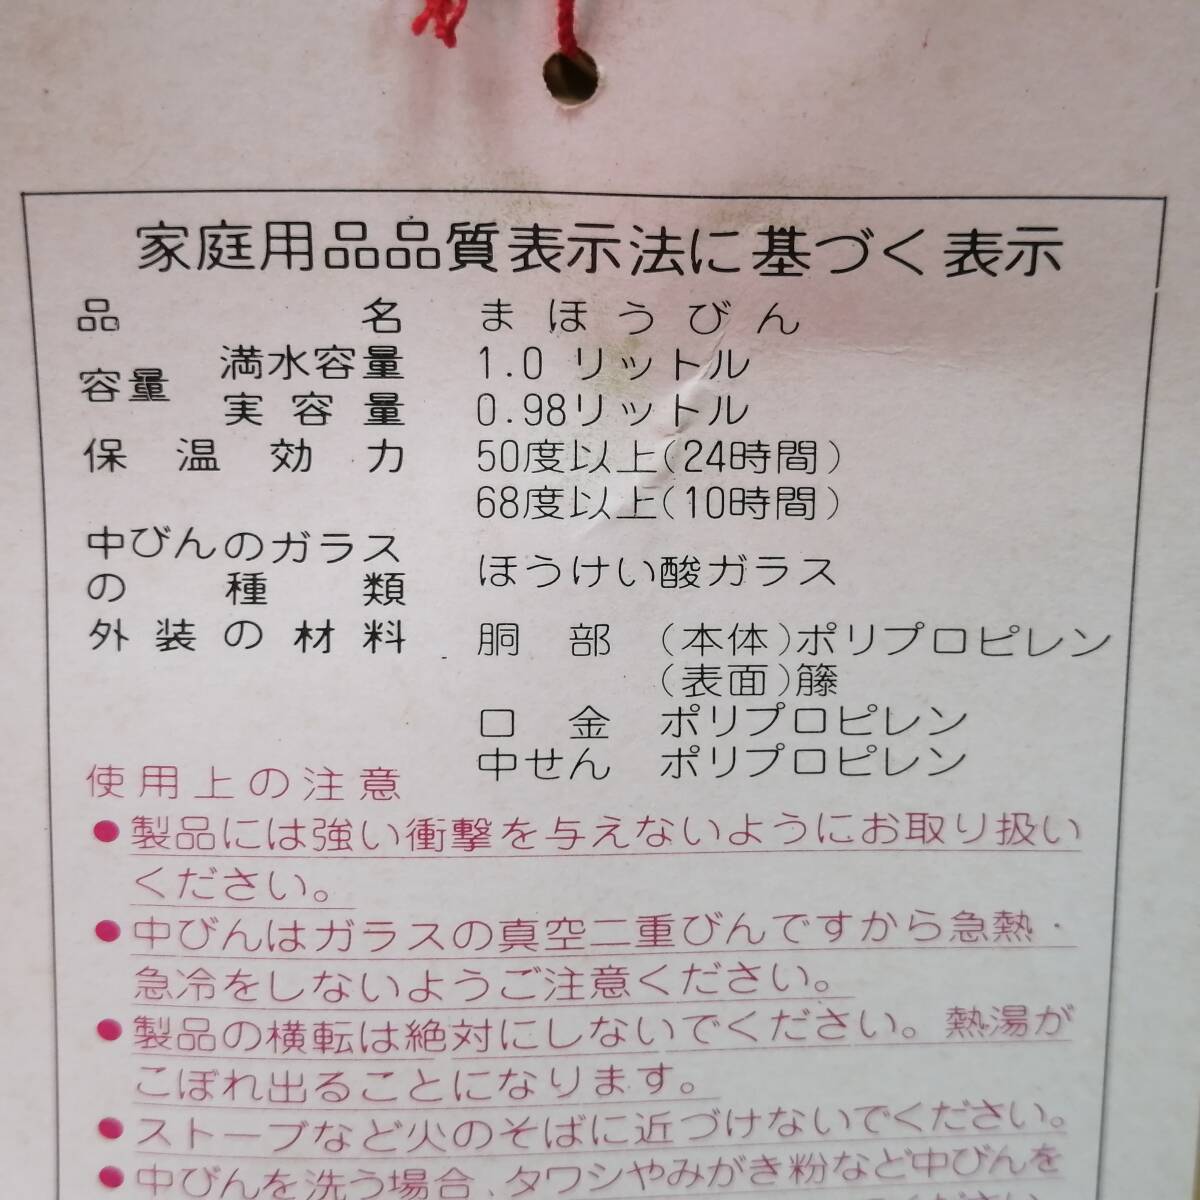 家庭用品品質表示法に基づく表示
品名 まほうびん
容量 満水容量 1.0リットル
実容量 0.98リットル
保温効力 50度以上(24時間)
68度以上(10時間)
中びんのガラス
の種類 ほうけい酸ガラス
外装の材料 胴部 (本体)ポリプロピレン
(表面)籐
口金 ポリプロピレン
中せん ポリプロピレン
使用上の注意
●製品には強い衝撃を与えないようにお取り扱い
ください。
●中びんはガラスの真空二重びんですから急熱・
急冷をしないようご注意ください。
●製品の横転は絶対にしないでください。熱湯が
こぼれ出ることになります。
●ストーブなど火のそばに近づけないでください。
●中びんを洗う場合、タワシやみがき粉など中びんを